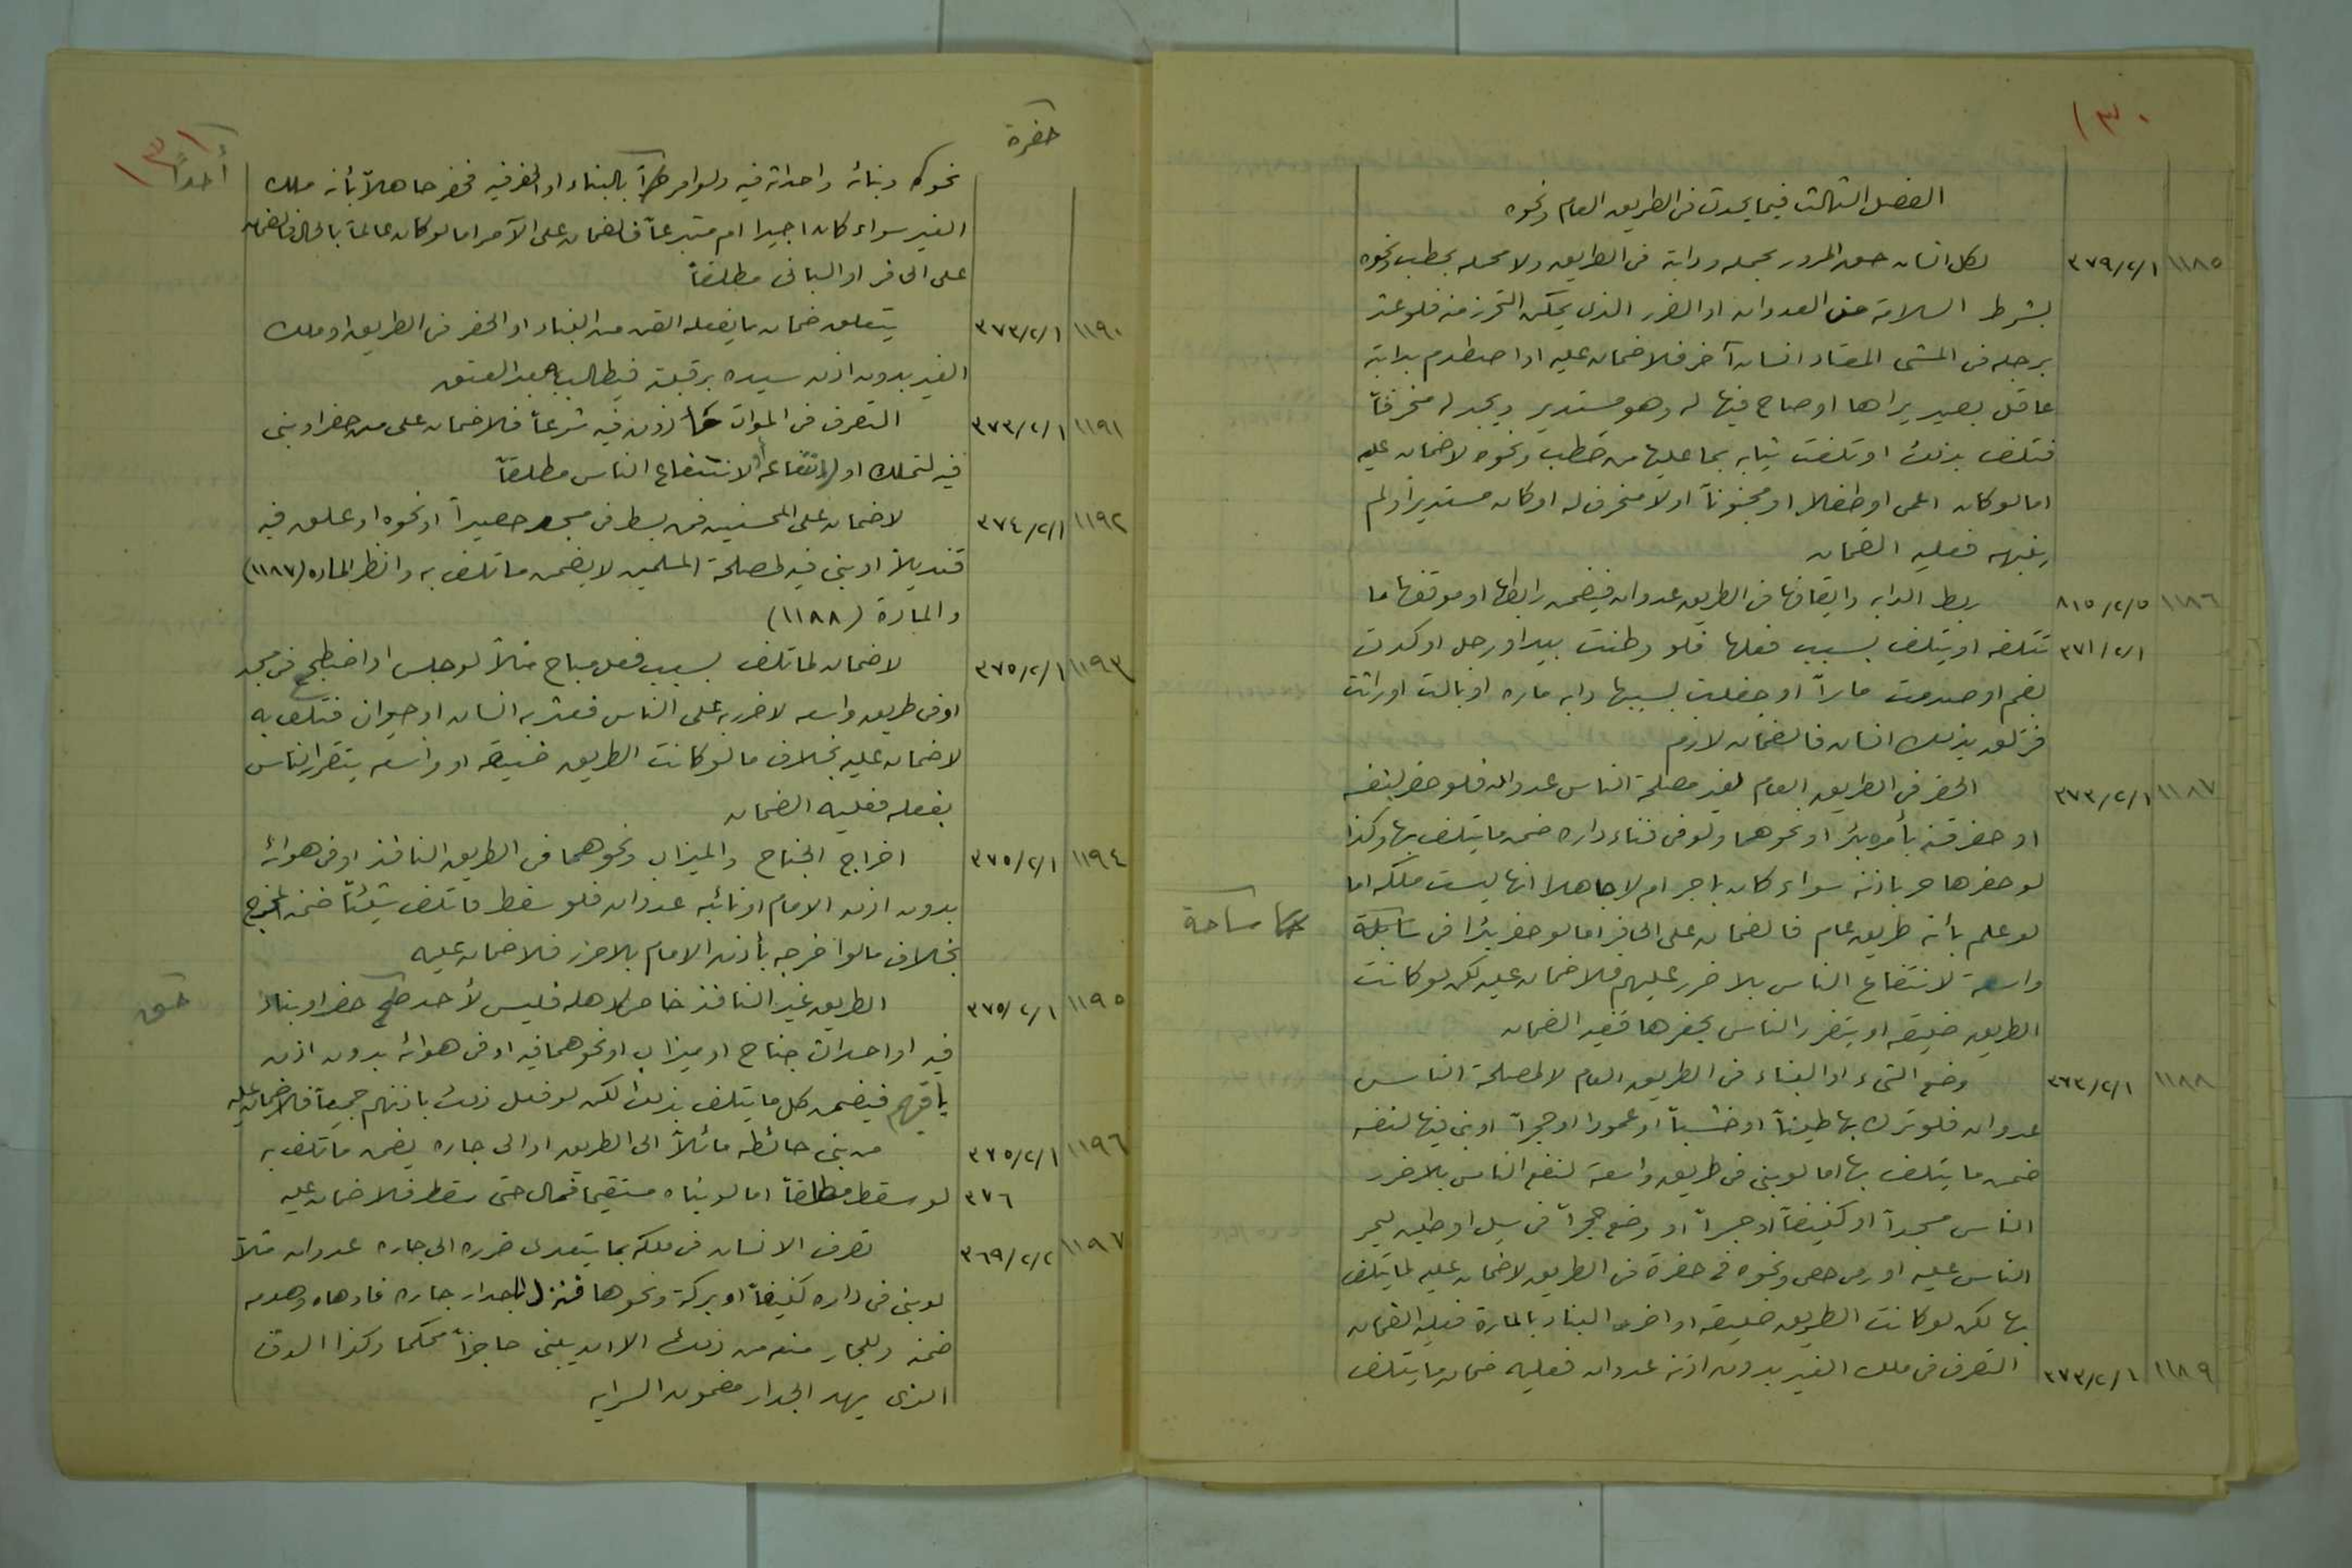 ١٣٠
الفصل الثالث فيما يحدث في الطريق العام ونحوه
١١٨٥ ٣٧٩/٢/١ لكل انسان حق المرور بحمله ودابته في الطريق ولا محله بحطب ونحوه
بشرط السلامة من العدوان او الضرر الذي يمكن التحرز منه فلو عثر
برجله في المشي المعتاد انسان آخر فلا ضمان عليه او اصطدم بدابته
عاقل بصير يراها او صاح فيها له وهو مستدير ويجد له منحرفاً
فتلف بذلك او تلفت ثيابه بما عليها من حطب ونحوه لا ضمان عليه
اما لو كان اعمى او طفلا او مجنوناً او لا منحرف له او كان مستديراً ولم
ينبهه فعليه الضمان
١١٨٦ ٨١٥/٢/٥ ربط الدابه وايقافها في الطريق عدوان فيضمن رابطها او موقفها ما
٣٧١/٢/١ تتلفه او يتلف بسبب فعلها فلو وطئت بيد او رجل او كدمت
بفم او صدمت ماراً او جفلت بسببها دابه ماره او بالت او راثت
فزلق بذلك انسان فالضمان لازم
١١٨٧ ٣٧٣/٢/١ الحفر في الطريق العام لغير مصلحة الناس عدوان فلو حفر لنفسه
او حفر قنه بأمره بئراً او نحوهما ولو في فناء داره ضمن ما يتلف بها وكذا
لو حفرها حر باذنه سواء كان باجر ام لا جاهلا انها ليست ملكه اما
لو علم بأنه طريق عام فالضمان على الحافر اما لو حفر بئرا في سابلة
ساحة
واسعة لانتفاع الناس بلا ضرر عليهم فلا ضمان عليه لكن لو كانت
الطريق ضيقه او يتضرر الناس بحفرها فعليه الضمان
١١٨٨ ٣٦٣/٢/١ وضع الشيء او البناء في الطريق العام لا لمصلحة الناس
عدوان فلو ترك بها طيناً او خشباً او عمودا او حجراً او بنى فيها لنفسه
ضمن ما يتلف بها اما لو بنى في طريق واسعة لنفع الناس بلا ضرر
الناس مسجداً او كنيفاً او جسراً او وضع حجراً في سيل او طين ليمر
الناس عليه او رمى حصى ونحوه في حفرة في الطريق لا ضمان عليه لما يتلف
بها لكن لو كانت الطريق ضيقه او اضر البناء بالمارة فعليه الضمان
١١٨٩ ٣٧٣/٢/١ التصرف في ملك الغير بدون اذنه عدوان فعليه ضمان ما يتلف
١٣١
حفرة
نحوه وبنائه واحداثه فيه ولو امر حراً بالبناء او الحفر فيه فحفر جاهلاً بأنه ملك
أحداً
الغير سواء كان اجيرا ام متبرعاً فالضمان على الآمر اما لو كان عالماً بالحال فالضمان
على الحافر او الباني مطلقاً
١١٩٠ ٣٧٣/٢/١ يتعلق ضمان ما يفعله القن من البناء او الحفر في الطريق او ملك
الغير بدون اذن سيده برقبته فيطالب بها بعد العتق
١١٩١ ٣٧٣/٢/١ التصرف في الموات مأذون فيه شرعاً فلا ضمان على من حفر او بنى
فيه لتملك او لانتفاعه او لانتفاع الناس مطلقاً
١١٩٢ ٣٧٤/٢/١ لا ضمان على المحسنين فمن بسط في مسجد حصيراً او نحوه او علق فيه
قنديلاً او بنى فيه لمصلحة المسلمين لا يضمن ما تلف به وانظر الماده (١١٨٧)
والمادة (١١٨٨)
١١٩٣ ٣٧٥/٢/١ لا ضمان لما تلف بسبب فعل مباح مثلاً لو جلس او اضطجع في مسجد
او في طريق واسعه لا ضرر به على الناس فعثر به انسان او حيوان فتلف به
لا ضمان عليه بخلاف ما لو كانت الطريق ضيقه او واسعه يتضرر الناس
بفعله فعليه الضمان
١١٩٤ ٣٧٥/٢/١ اخراج الجناح والميزاب ونحوهما في الطريق النافذ او في هوائه
بدون اذن الامام او نائبه عدوان فلو سقط فاتلف شيئاً ضمنه المخرج
بخلاف ما لو اخرجه بأذن الامام بلا ضرر فلا ضمان عليه
١١٩٥ ٣٧٥/٢/١ الطريق غير النافذ خاص لاهله فليس لأحد حفر او بناء
حق
فيه او احداث جناح او ميزاب او نحوهما فيه او في هوائه بدون اذن
باقيهم فيضمن كل ما يتلف بذلك لكن لو فعل ذلك باذنهم جميعاً فلا ضمان عليه
١١٩٦ ٣٧٥/٢/١ من بنى حائطه مائلاً الى الطريق او الى جاره يضمن ما تلف به
٣٧٦ لو سقط مطلقاً اما لو بناه مستقيما فمال حتى سقط فلا ضمان عليه
١١٩٧ ٣٦٩/٢/٢ تصرف الانسان في ملكه بما يتعدى ضرره الى جاره عدوان مثلاً
لو بنى في داره كنيفاً او بركة ونحوها فنزل لجدار جاره فاوهاه وهدمه
ضمنه وللجار منعه من ذلك الا ان يبنى حاجزاً محكما وكذا الدق
الذي يهد الجدار مضمون السرايه